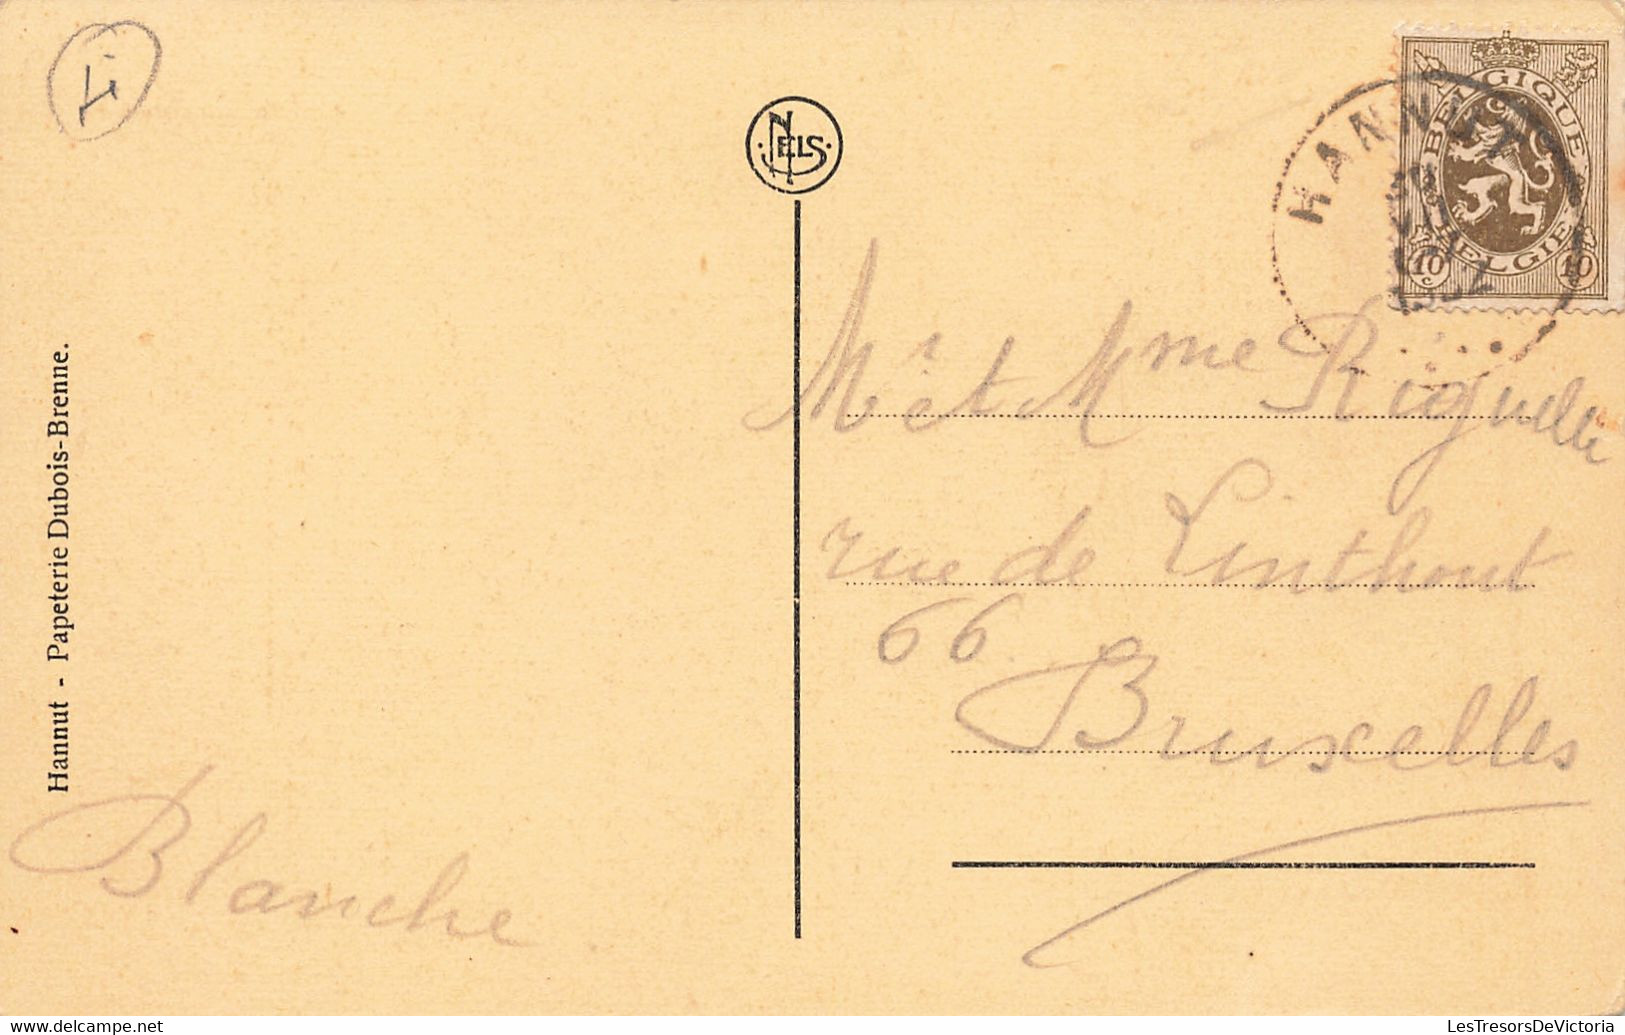 Li
NELS
HANNUT
1932
BELGIQUE
BELGIE
10 c
10
Hannut - Papeterie Dubois-Brenne.
Mr et Mme Riguelle
rue de Linthout
66
Bruxelles
Blanche.
www.delcampe.net
LesTresorsDeVictoria